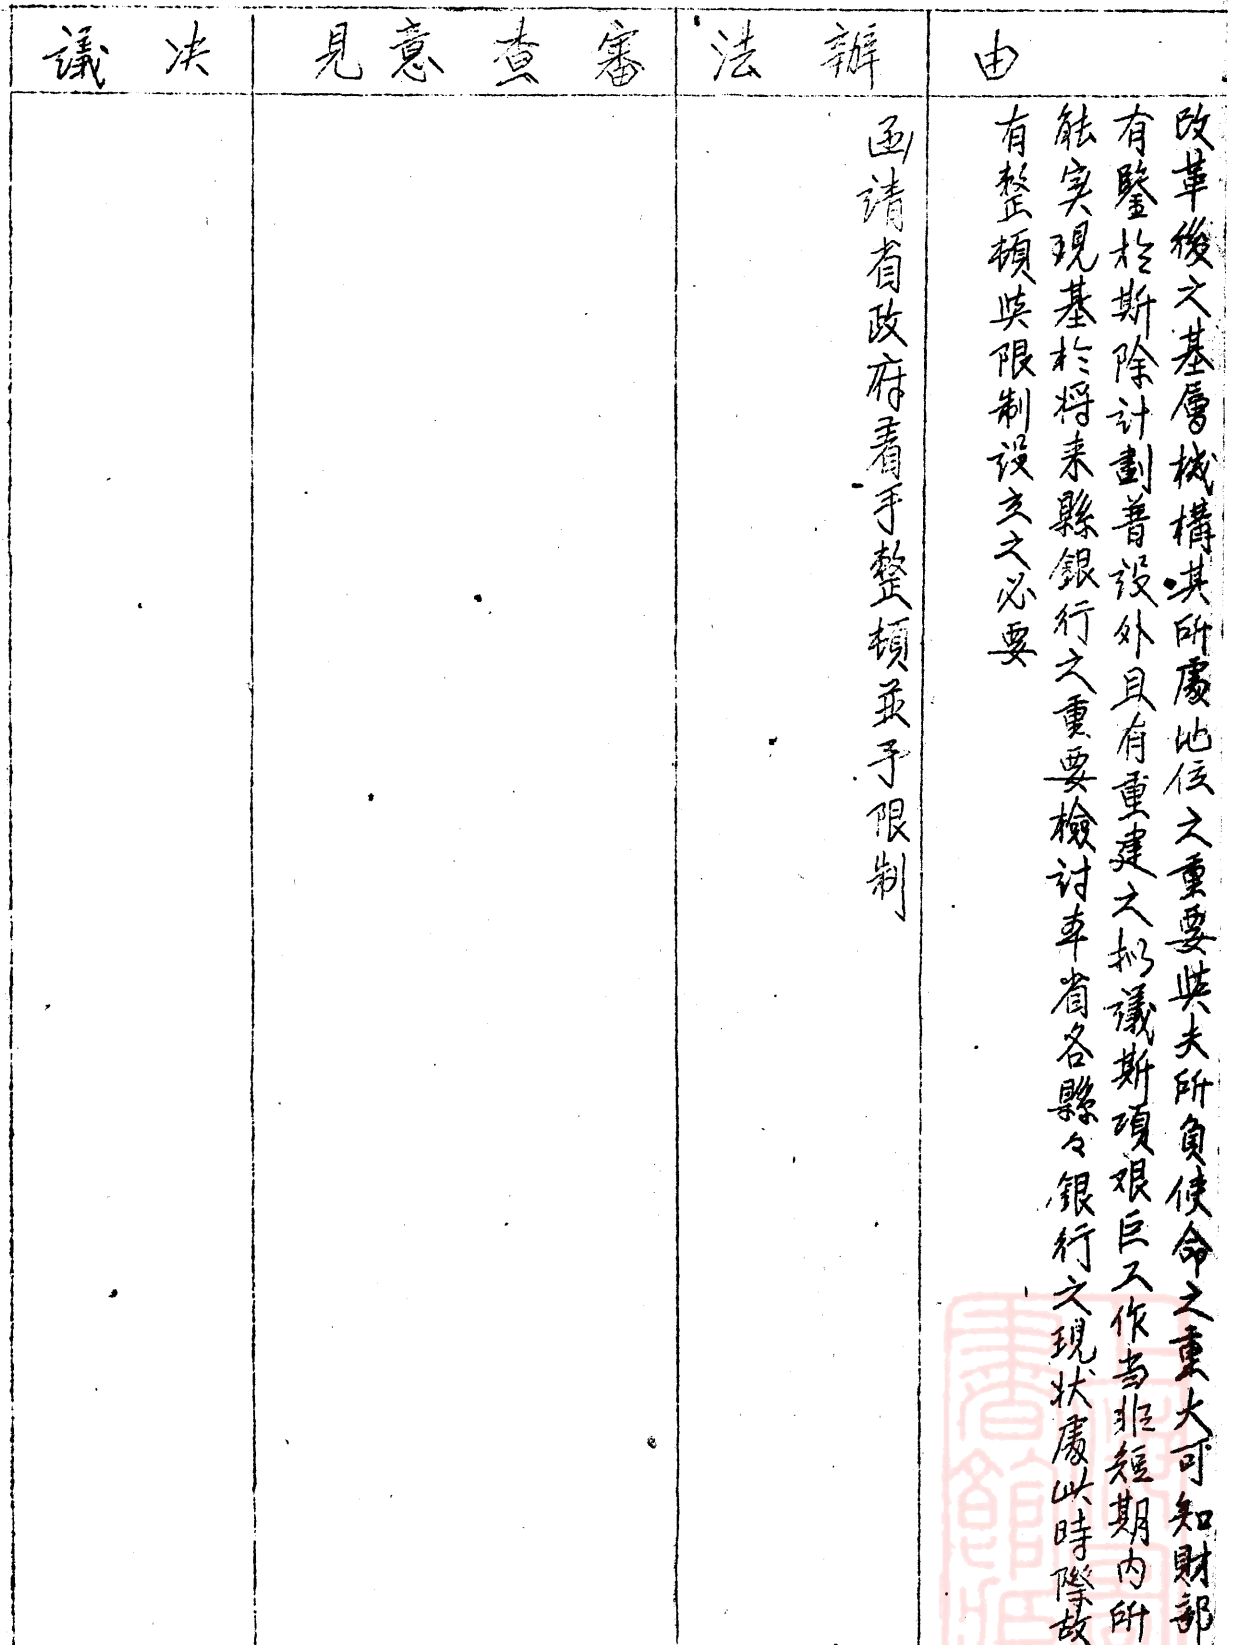 由
改革後之基層機構其所處地位之重要與夫所負使命之重大可知財部
有鑒於斯除計劃普設外且有重建之拟議斯項艰巨工作当非短期内所
能实現基於将来縣銀行之重要檢討本省各縣々銀行之現状處此時際故
有整頓與限制設立之必要
辦法
函請省政府着手整頓並予限制
審查意見
決議